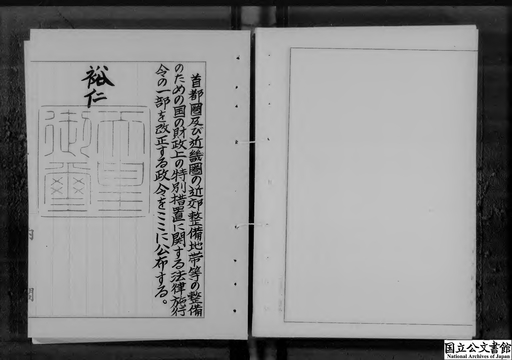 首都圏及び近畿圏の近郊整備地帯等の整備
のための国の財政上の特別措置に関する法律施行
令の一部を改正する政令をここに公布する。
裕仁
天皇
御璽
国立公文書館
National Archives of Japan